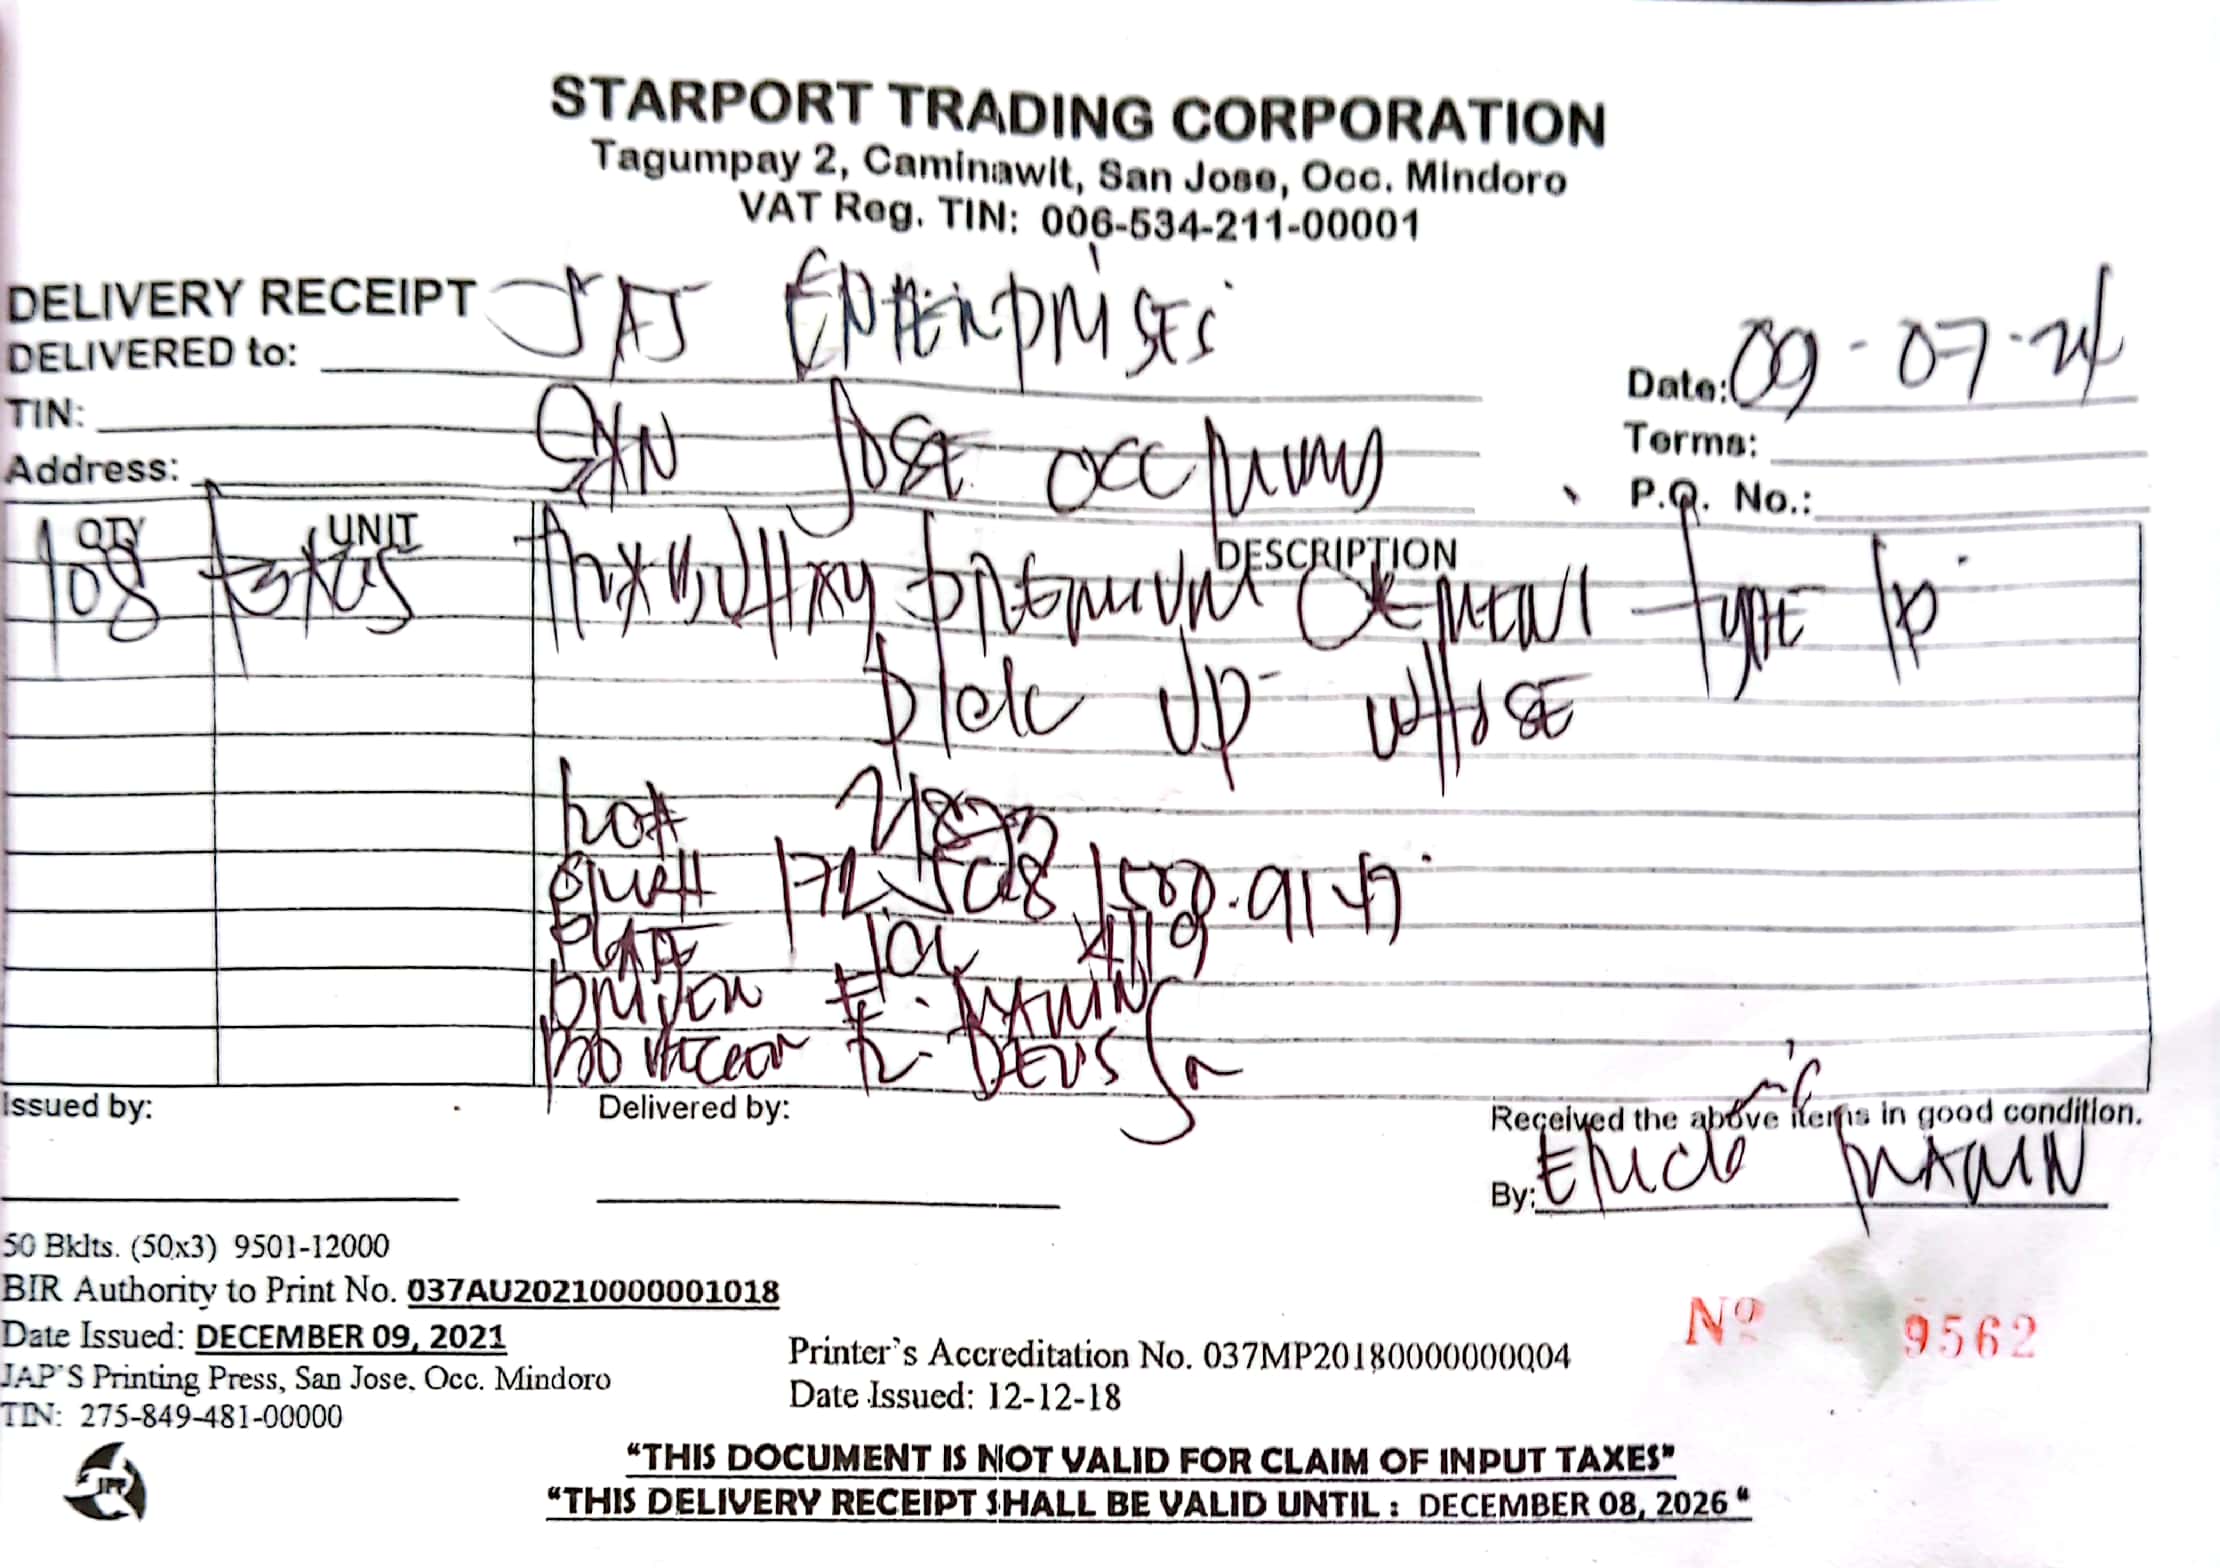 STARPORT TRADING CORPORATION
Tagumpay 2, Caminawit, San Jose, Occ. Mindoro
VAT Reg. TIN: 006-534-211-00001
DELIVERY RECEIPT
DELIVERED to: JAJ ENTERPRISES
Date: 09-07-24
TIN:
Terms:
Address: SAN JOSE OCC
P.O. No.:
QTY UNIT DESCRIPTION
PREMIUM CEMENT TYPE 1P
PICK UP WHSE
PLATE
DRIVER E. MAWIN
R. DEUS
Issued by:
Delivered by:
Received the above items in good condition.
By: MAWIN
50 Bklts. (50x3) 9501-12000
BIR Authority to Print No. 037AU20210000001018
Date Issued: DECEMBER 09, 2021
JAP'S Printing Press, San Jose, Occ. Mindoro
TIN: 275-849-481-00000
Printer's Accreditation No. 037MP20180000000004
Date Issued: 12-12-18
Nº 9562
JPP
"THIS DOCUMENT IS NOT VALID FOR CLAIM OF INPUT TAXES"
"THIS DELIVERY RECEIPT SHALL BE VALID UNTIL : DECEMBER 08, 2026"